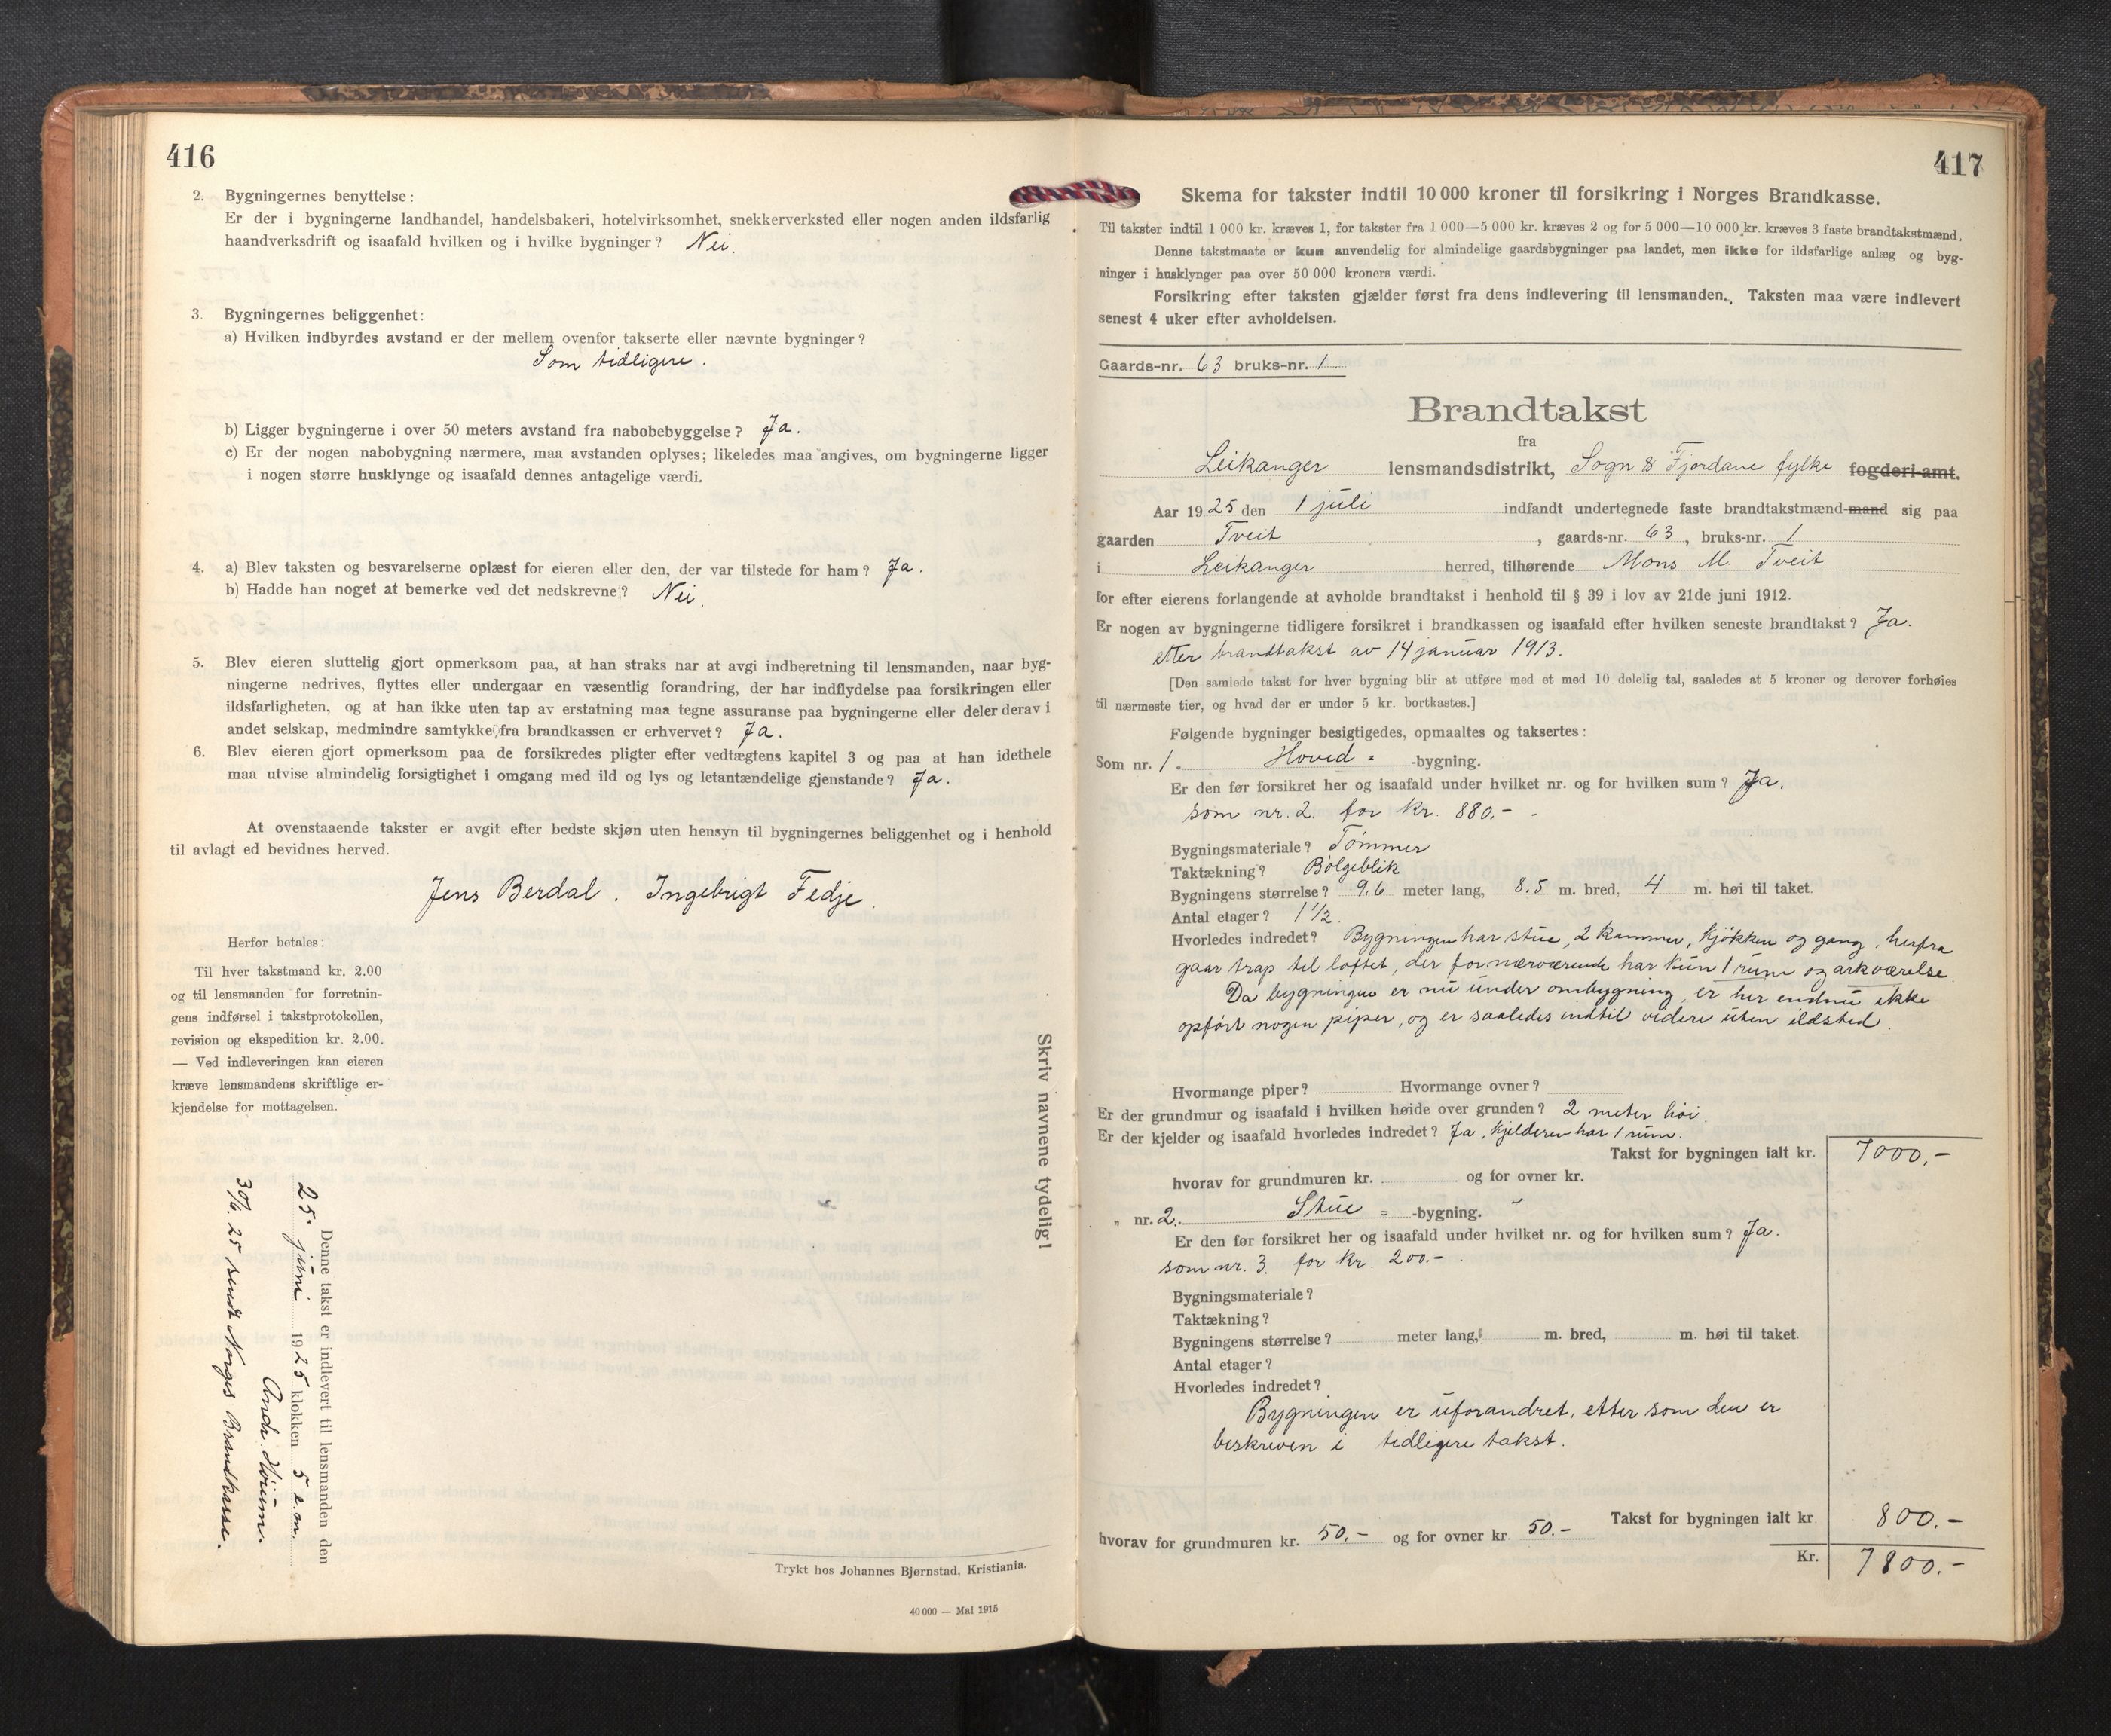 416
2. Bygningernes benyttelse:
Er der i bygningerne landhandel, handelsbakeri, hotelvirksomhet, snekkerverksted eller nogen anden ildsfarlig
haandverksdrift og isaafald hvilken og i hvilke bygninger? Nei.
3. Bygningernes beliggenhet:
a) Hvilken indbyrdes avstand er der mellem ovenfor takserte eller nævnte bygninger?
Som tidligere.
b) Ligger bygningerne i over 50 meters avstand fra nabobebyggelse? Ja.
c) Er der nogen nabobygning nærmere, maa avstanden oplyses; likeledes maa angives, om bygningerne ligger
i nogen større husklynge og isaafald dennes antagelige værdi.
4. a) Blev taksten og besvarelserne oplæst for eieren eller den, der var tilstede for ham? Ja.
b) Hadde han noget at bemerke ved det nedskrevne? Nei.
5. Blev eieren sluttelig gjort opmerksom paa, at han straks har at avgi indberetning til lensmanden, naar byg-
ningerne nedrives, flyttes eller undergaar en væsentlig forandring, der har indflydelse paa forsikringen eller
ildsfarligheten, og at han ikke uten tap av erstatning maa tegne assuranse paa bygningerne eller deler derav i
andet selskap, medmindre samtykke fra brandkassen er erhvervet? Ja.
6. Blev eieren gjort opmerksom paa de forsikredes pligter efter vedtægtens kapitel 3 og paa at han idethele
maa utvise almindelig forsigtighet i omgang med ild og lys og letantændelige gjenstande? Ja.
At ovenstaaende takster er avgit efter bedste skjøn uten hensyn til bygningernes beliggenhet og i henhold
til avlagt ed bevidnes herved.
Jens Berdal. Ingebrigt Fedje.
Herfor betales:
Til hver takstmand kr. 2.00
og til lensmanden for forretnin-
gens indførsel i takstprotokollen,
revision og ekspedition kr. 2.00.
— Ved indleveringen kan eieren
kræve lensmandens skriftlige er-
kjendelse for mottagelsen.
Skriv navnene tydelig!
Denne takst er indlevert til lensmanden den
25. juni 1925 klokken 5 e.m.
Andr. Høium.
30/6. 25 sendt Norges Brandkasse.
Trykt hos Johannes Bjørnstad, Kristiania.
40 000 — Mai 1915
417
Skema for takster indtil 10 000 kroner til forsikring i Norges Brandkasse.
Til takster indtil 1 000 kr. kræves 1, for takster fra 1 000—5 000 kr. kræves 2 og for 5 000—10 000 kr. kræves 3 faste brandtakstmænd.
Denne takstmaate er kun anvendelig for almindelige gaardsbygninger paa landet, men ikke for ildsfarlige anlæg og byg-
ninger i husklynger paa over 50 000 kroners værdi.
Forsikring efter taksten gjælder først fra dens indlevering til lensmanden. Taksten maa være indlevert
senest 4 uker efter avholdelsen.
Gaards-nr. 63 bruks-nr. 1.
Brandtakst
fra
Leikanger lensmandsdistrikt, Sogn & Fjordane fylke fogderi-amt.
Aar 1925 den 1 juli indfandt undertegnede faste brandtakstmænd-mand sig paa
gaarden Tveit, gaards-nr. 63, bruks-nr. 1
i Leikanger herred, tilhørende Mons M. Tveit
for efter eierens forlangende at avholde brandtakst i henhold til § 39 i lov av 21de juni 1912.
Er nogen av bygningerne tidligere forsikret i brandkassen og isaafald efter hvilken seneste brandtakst? Ja.
etter brandtakst av 14 januar 1913.
[Den samlede takst for hver bygning blir at utføre med et med 10 delelig tal, saaledes at 5 kroner og derover forhøies
til nærmeste tier, og hvad der er under 5 kr. bortkastes.]
Følgende bygninger besigtigedes, opmaaltes og taksertes:
Som nr. 1. Hoved = -bygning.
Er den før forsikret her og isaafald under hvilket nr. og for hvilken sum? Ja.
som nr. 2. for kr. 880.-
Bygningsmateriale? Tømmer
Taktækning? Bølgeblik
Bygningens størrelse? 9.6 meter lang, 8.5 m. bred, 4 m. høi til taket.
Antal etager? 1 1/2.
Hvorledes indredet? Bygningen har stue, 2 kammer, kjøkken og gang, herfra
gaar trap til loftet, der for nærværende har kun 1 rum og arkværelse.
Da bygningen er nu under ombygning, er her endnu ikke
opført nogen piper, og er saaledes indtil videre uten ildsted.
Hvormange piper? Hvormange ovner?
Er der grundmur og isaafald i hvilken høide over grunden? 2 meter høi.
Er der kjelder og isaafald hvorledes indredet? Ja, kjelderen har 1 rum.
Takst for bygningen ialt kr. 7000.-
hvorav for grundmuren kr. og for ovner kr.
" nr. 2. Stue = -bygning.
Er den før forsikret her og isaafald under hvilket nr. og for hvilken sum? Ja.
som nr. 3. for kr. 200.-
Bygningsmateriale?
Taktækning?
Bygningens størrelse? meter lang, m. bred, m. høi til taket.
Antal etager?
Hvorledes indredet?
Bygningen er uforandret, etter som den er
beskreven i tidligere takst.
Takst for bygningen ialt kr 800.-
hvorav for grundmuren kr. 50.- og for ovner kr. 50.-
Kr. 7800.-